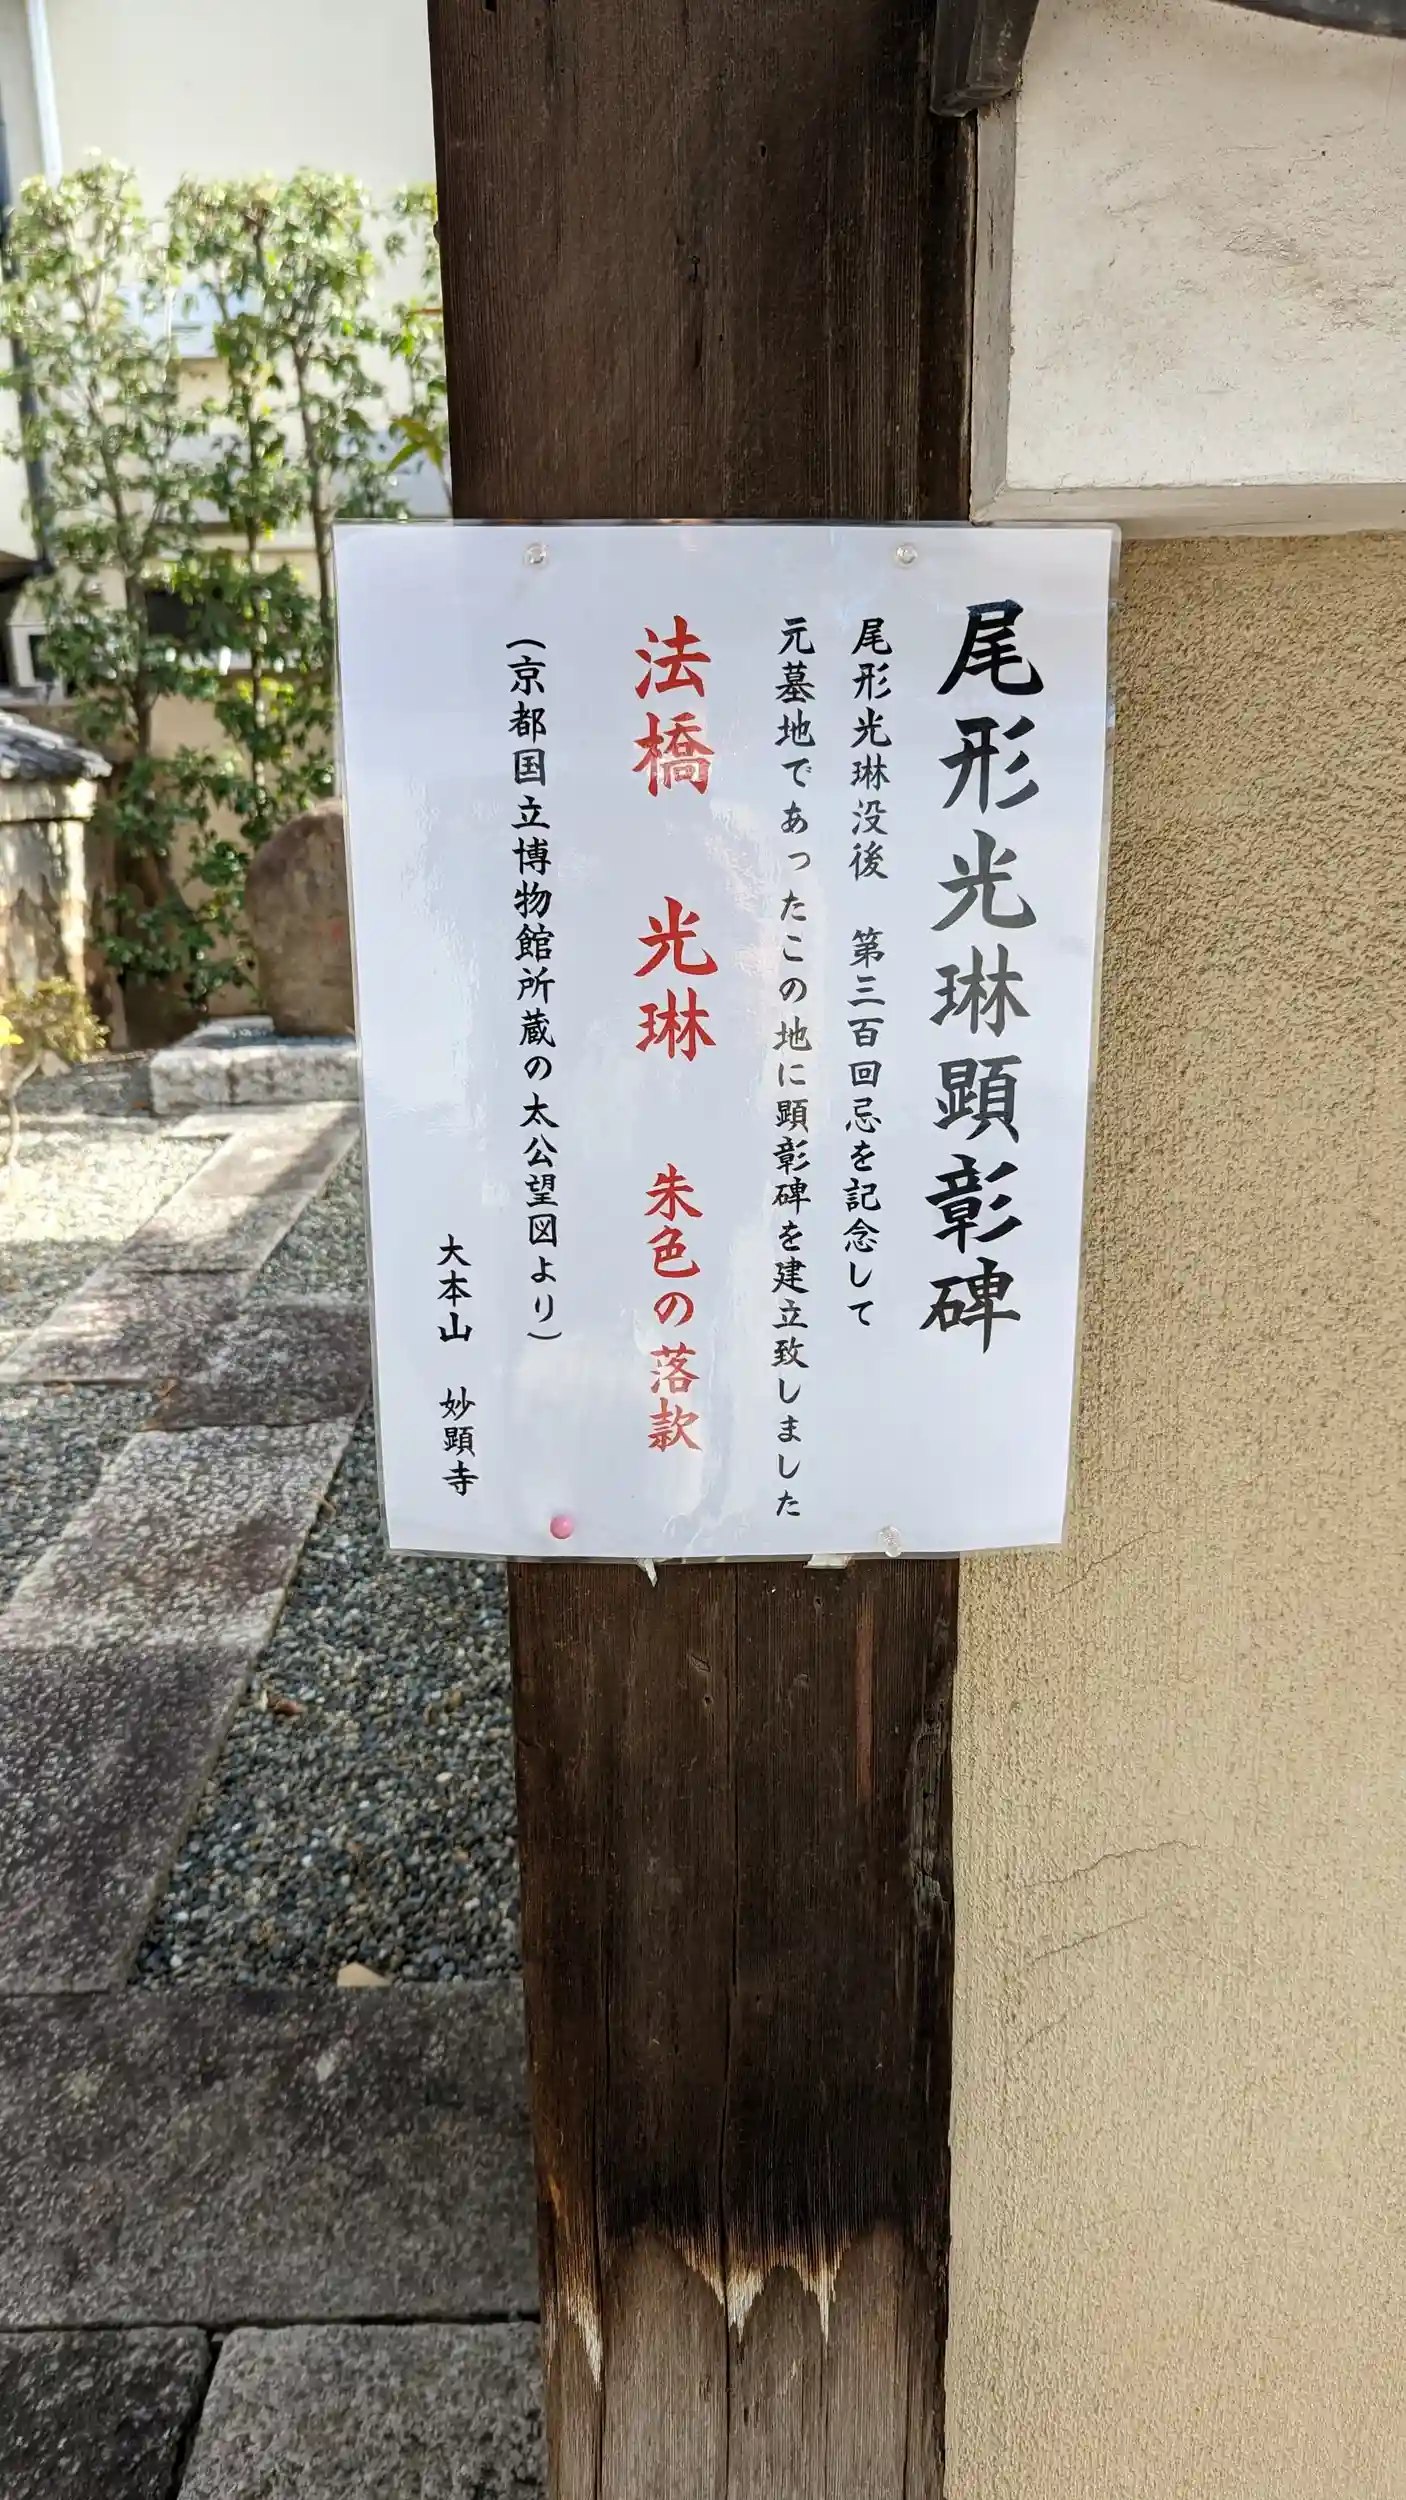 尾形光琳顕彰碑
尾形光琳没後　第三百回忌を記念して
元墓地であったこの地に顕彰碑を建立致しました
法橋　光琳　朱色の落款
（京都国立博物館所蔵の太公望図より）
大本山　妙顕寺